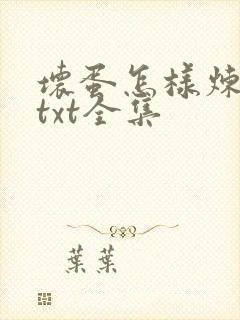 壞蛋怎樣煉
txt全集
葉葉